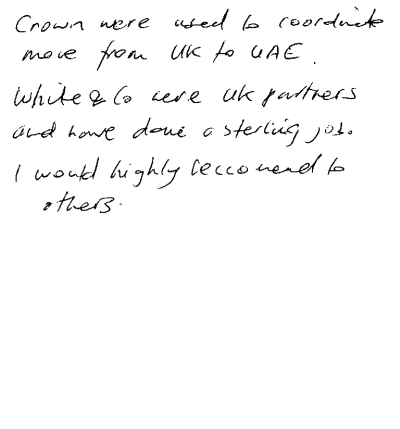 Crown were used to coordinate
move from UK to UAE.
White & Co were UK partners
and have done a sterling job.
I would highly reccomend to
others.